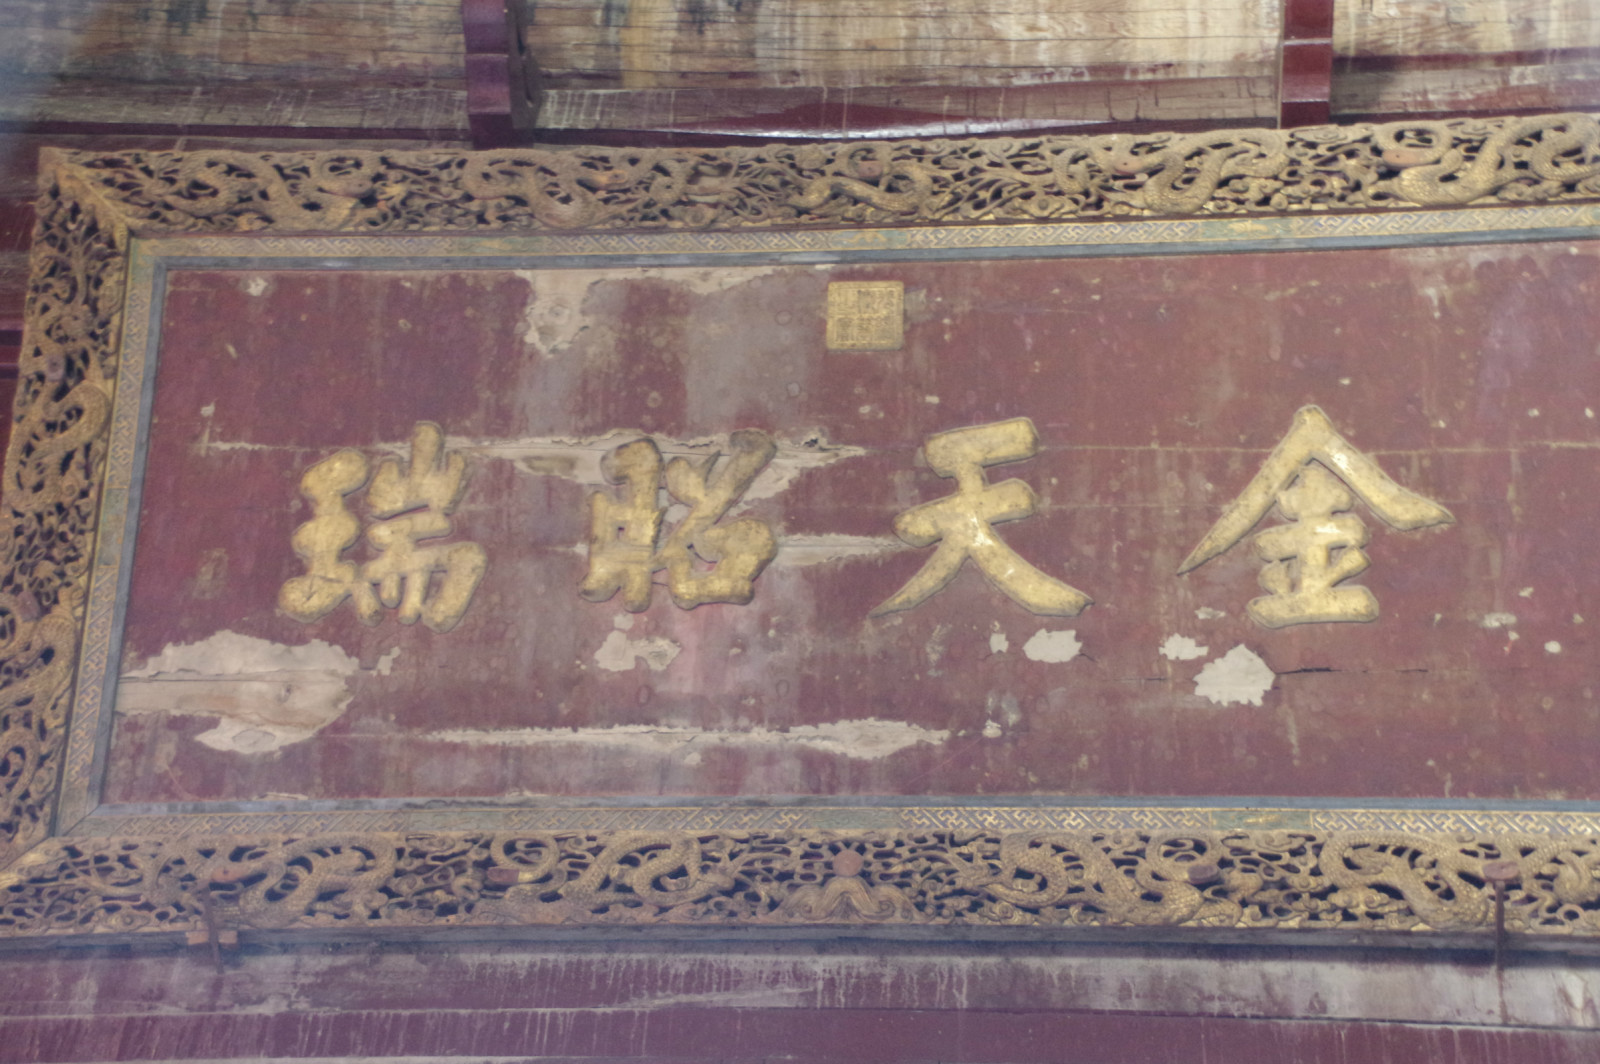 金天昭瑞